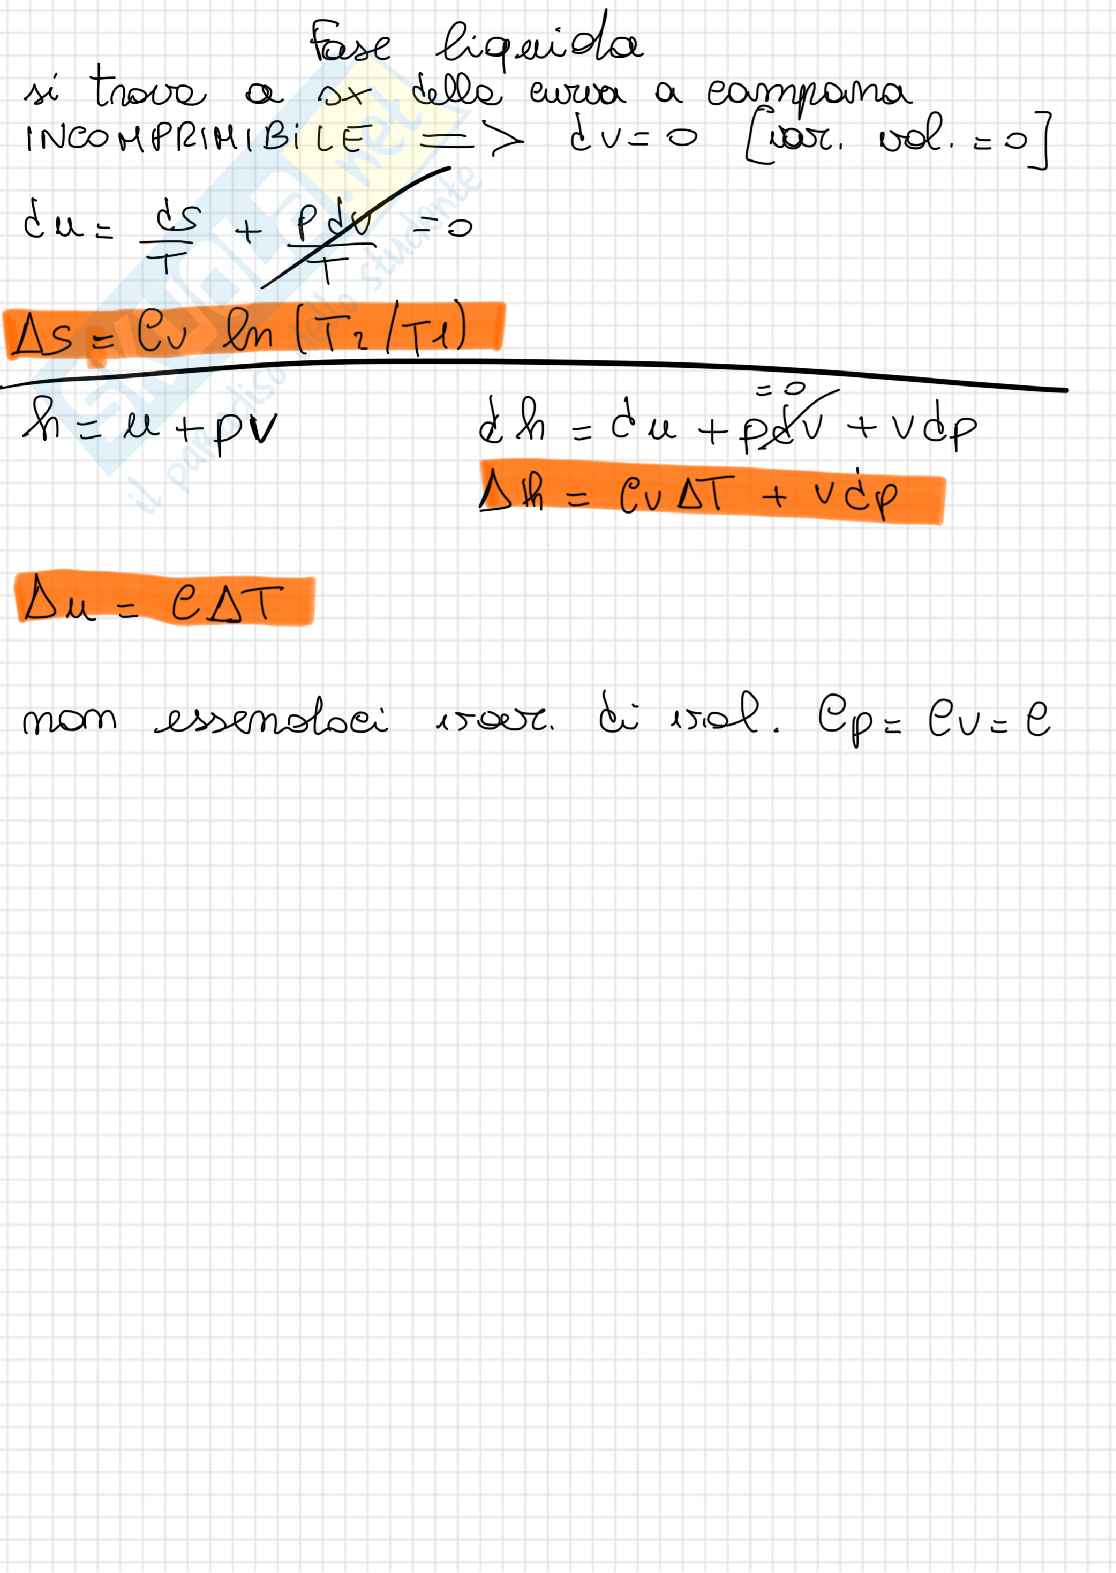 Fase liquida
si trova a sx della curva a campana
INCOMPRIMIBILE => dv = 0 [var. vol. = 0]
du = ds/T + pdv/T = 0
Δs = Cv ln (T2/T1)
h = u + pv
= 0
dh = du + pdv + vdp
Δh = CvΔT + vdp
Δu = CΔT
non essendoci var. di vol. Cp = Cv = C
skuola.net
il paradiso dello studente